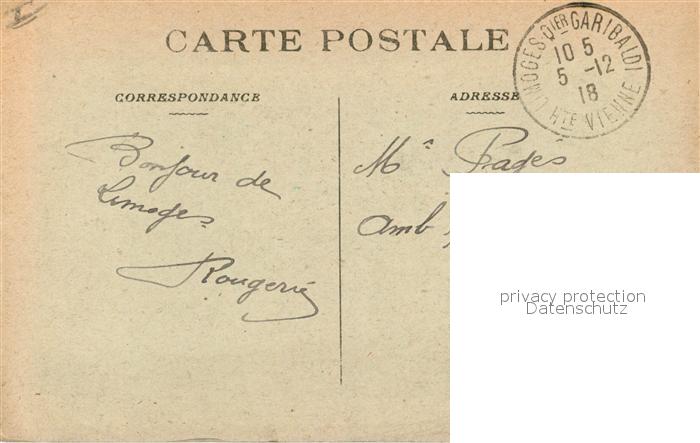 CARTE POSTALE
LIMOGES-QIER GARIBALDI
10 5
5 -12
18
HTE VIENNE
CORRESPONDANCE
ADRESSE
Bonjour de
Limoges
Rougerie
Mr Pagès
Amb
privacy protection
Datenschutz